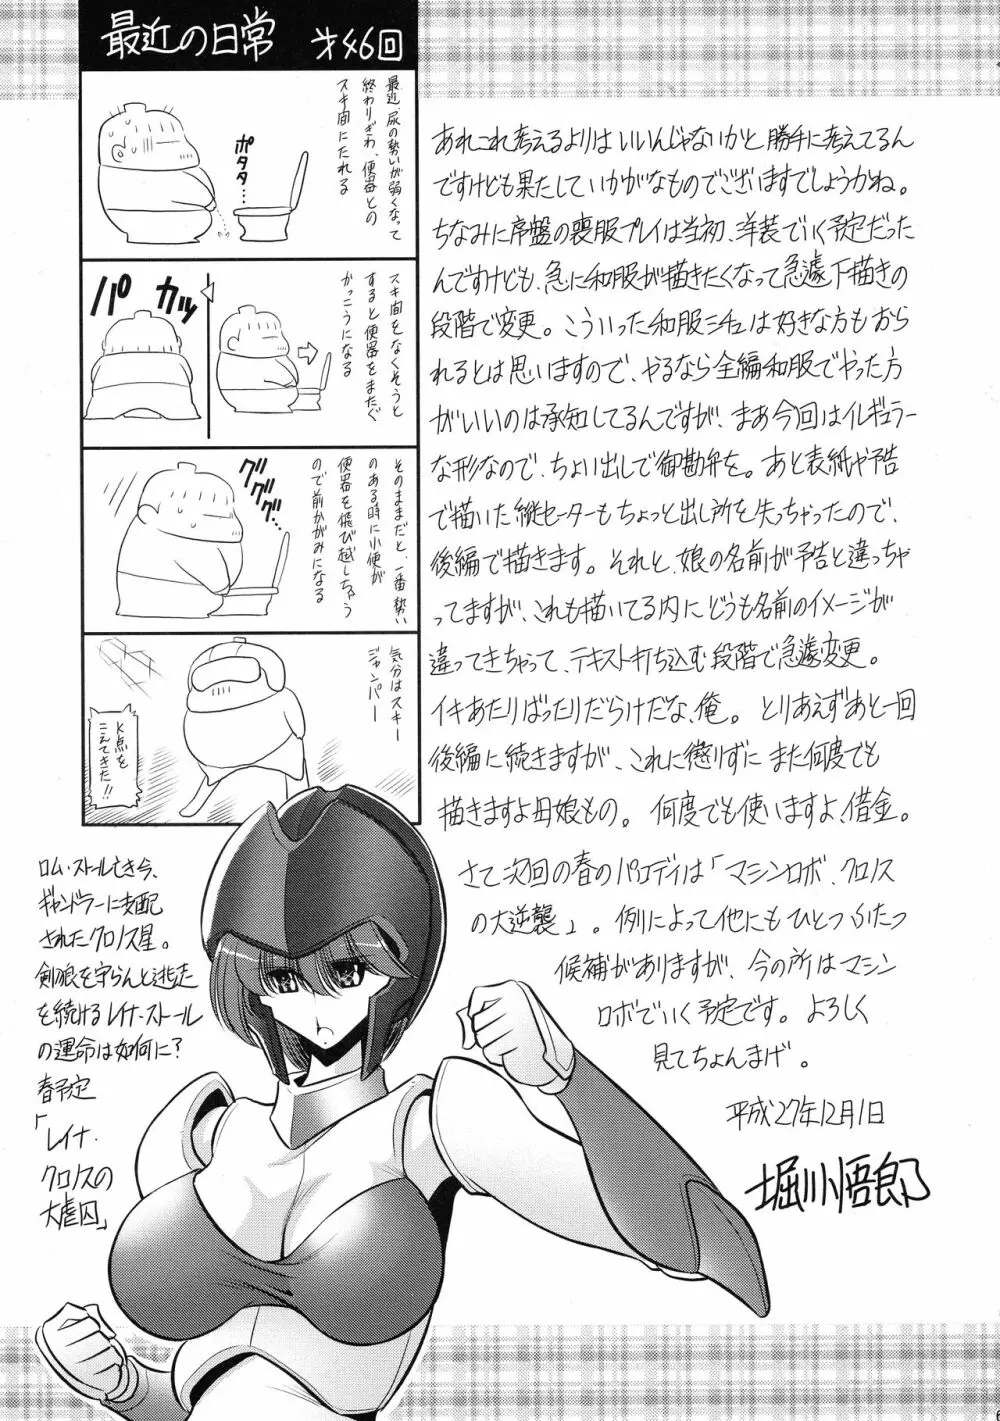 最近の日常 才46回
最近、尿の勢いが弱くなって
終わりぎわ、便器との
スキ間にたれる
ポタタ…
スキ間をなくそうと
すると便器をまたぐ
かっこうになる
パカッ
そのままだと、一番勢い
のある時に小便が
便器を飛び越しちゃう
ので前かがみになる
ググググ…
気分はスキー
ジャンパー
K点を
こえてきた!!
あれこれ考えるよりはいいんじゃないかと、勝手に考えてるん
ですけども果たしていかがなものでございますでしょうかね。
ちなみに序盤の喪服プレイは当初、洋装でいく予定だった
んですけども、急に和服が描きたくなって急遽下描きの
段階で変更。こういった和服ミチュは好きな方もおら
れるとは思いますので、やるなら全編和服でやった方
がいいのは承知してるんですが、まあ今回はイレギュラー
な形なので、ちょい出しで御勘弁を。あと表紙や予告
で描いた縦セーターもちょっと出し所を失っちゃったので、
後編で描きます。それと、娘の名前が予告と違っちゃ
ってますが、これも描いてる内にどうも名前のイメージが
違ってきちゃって、テキスト打ち込む段階で急遽変更。
イキあたりばったりだらけだな、俺。とりあえずあと一回
後編に続きますが、これに懲りずにまた何度でも
描きますよ母娘もの。何度でも使いますよ、借金。
さて次回の春のパロディは「マシンロボ、クロノス
の大逆襲」。例によって他にもひとつふたつ
候補がありますが、今の所はマシン
ロボでいく予定です。よろしく
見てちょんまげ。
平成27年12月1日
堀川悟郎
ロム・ストール亡き今、
ギャンドラーに支配
されたクロノス星。
剣狼を守らんと逃走
を続けるレイナ・ストール
の運命は如何に?
春予定
「レイナ・
クロノスの
大虐囚」